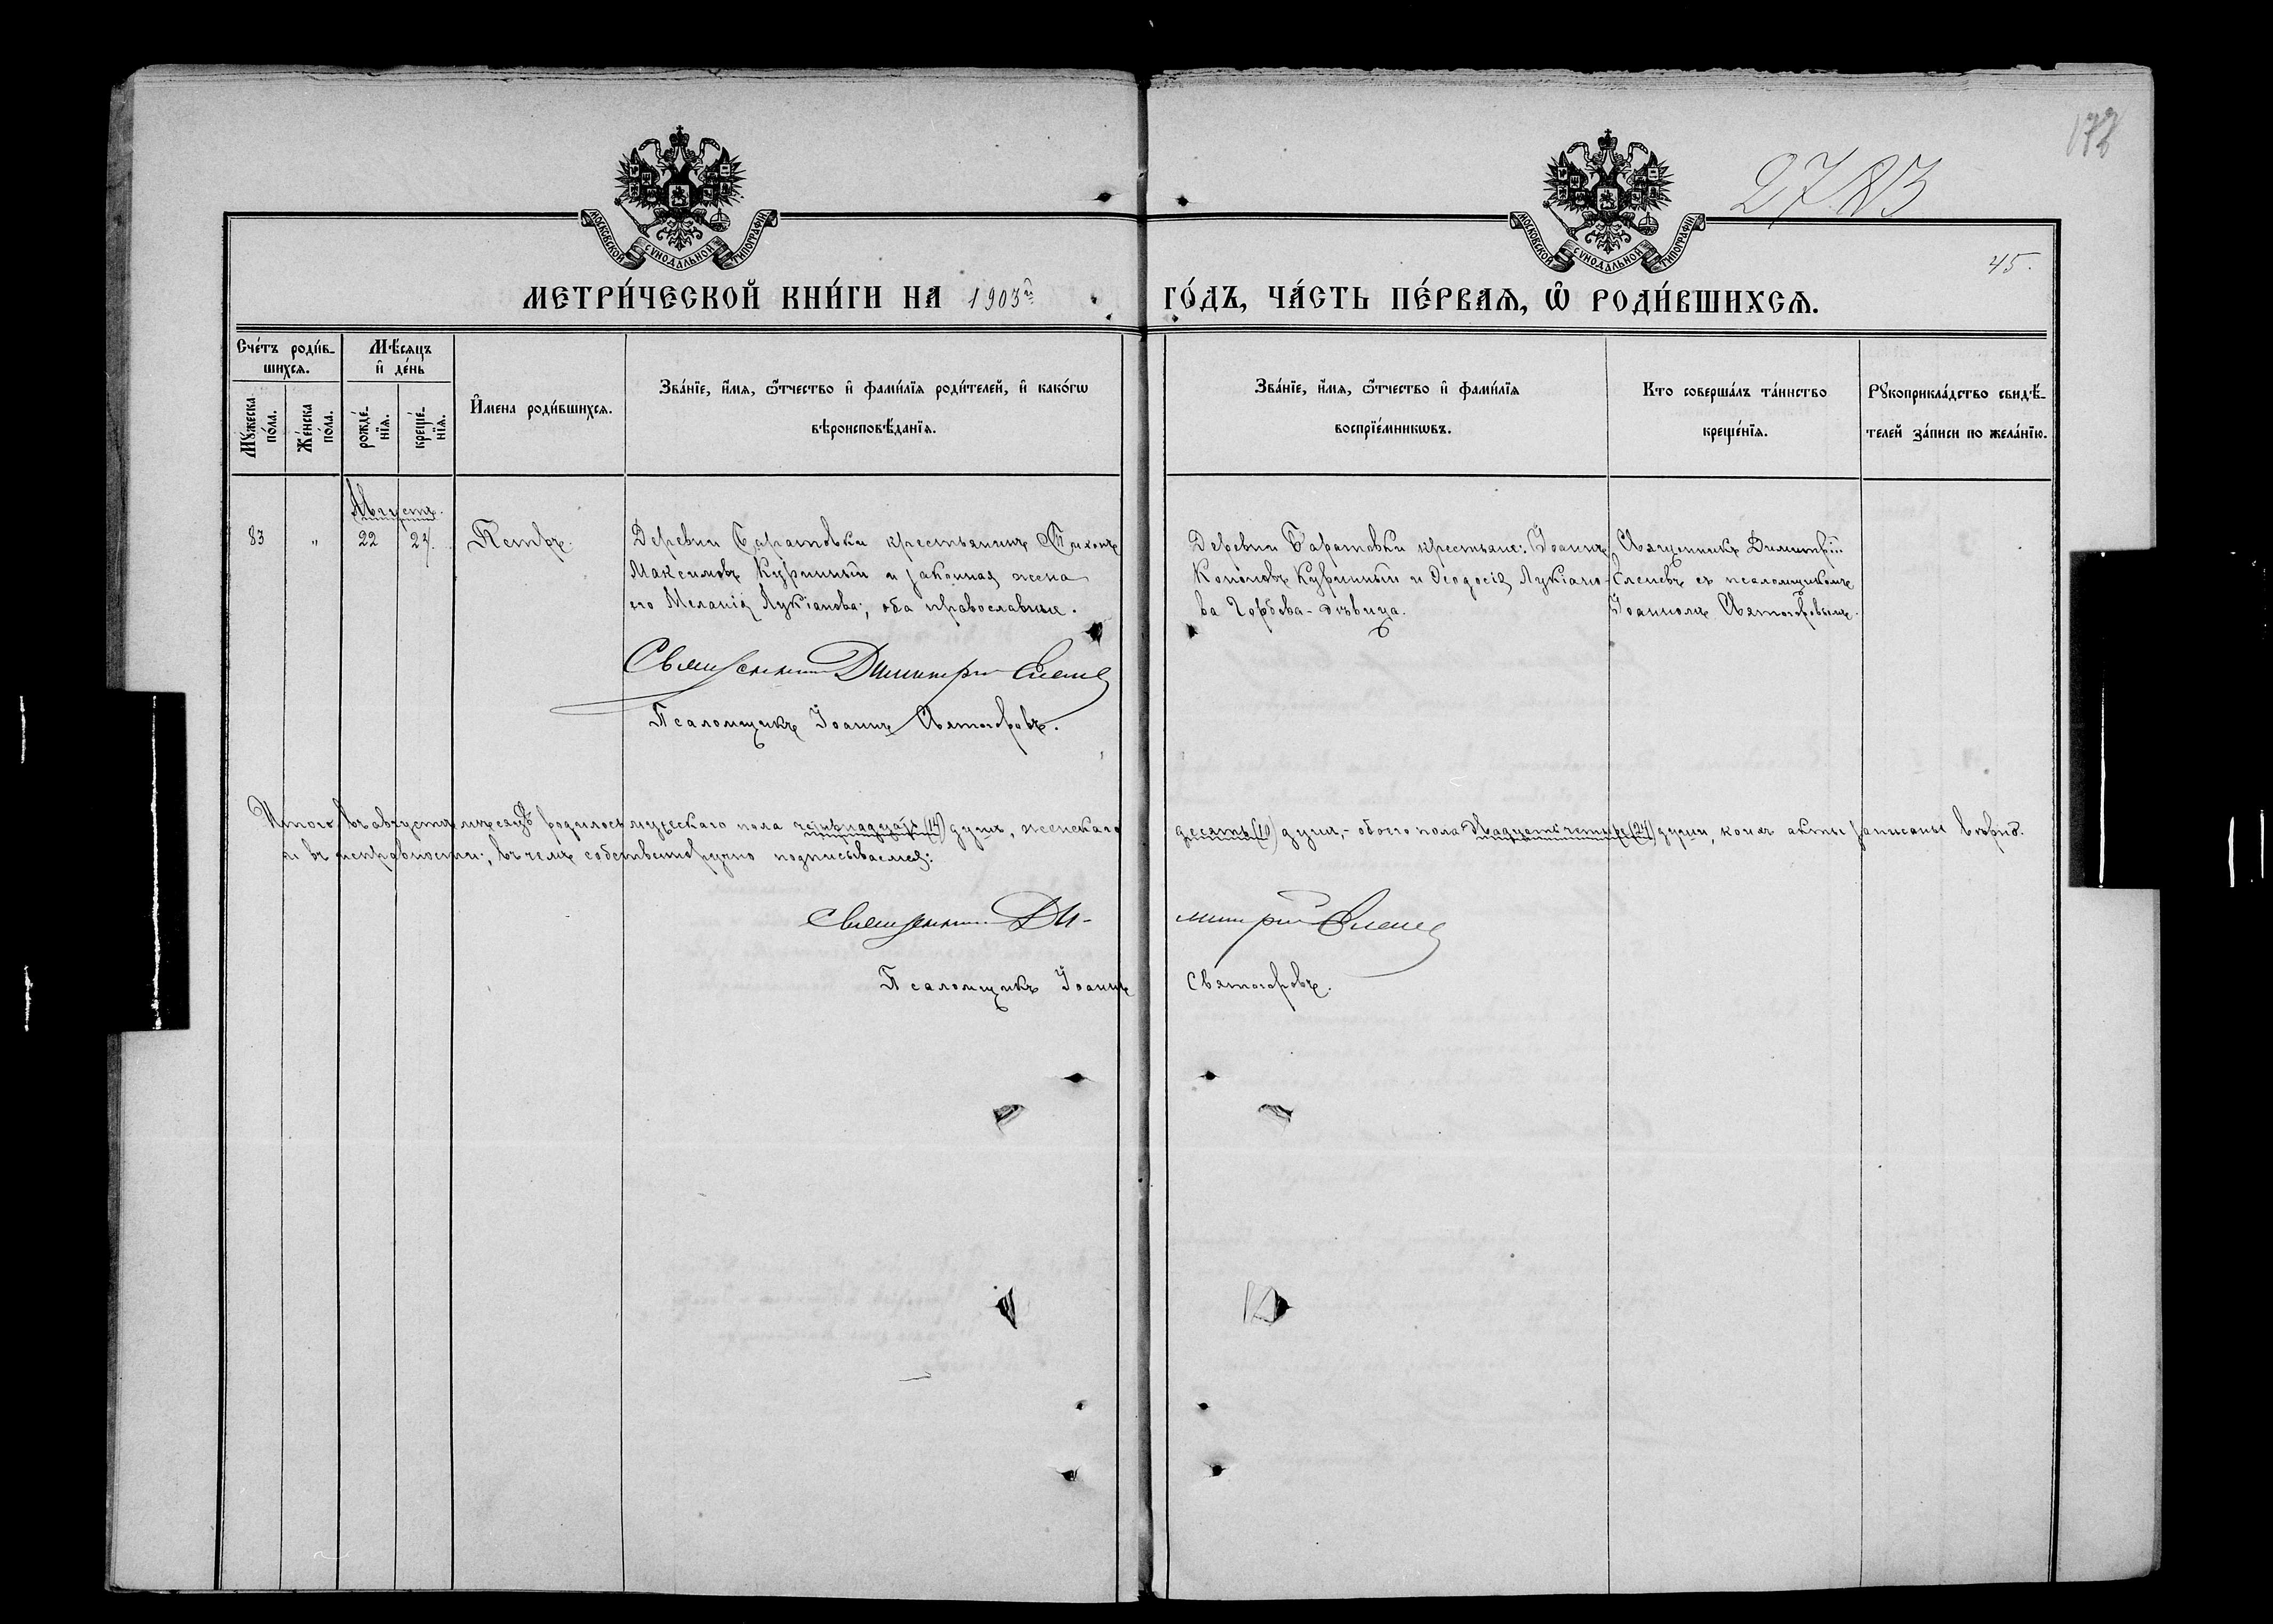 178
2783
45.
МОСКОВСКОЙ СѴНОДАЛЬНОЙ ТИПОГРАФІИ
МОСКОВСКОЙ СѴНОДАЛЬНОЙ ТИПОГРАФІИ
МЕТРИ́ЧЕСКОЙ КНИ́ГИ НА 1903й ГО́ДЪ, ЧА́СТЬ ПЕ́РВАѦ, Ѿ РОДИ́ВШИХСѦ.
Сче́тъ роди́в-
шихсѧ.
Мꙋ́жеска
по́ла.
Же́нска
по́ла.
Мѣ́сѧцъ
и҆ де́нь
рожде́-
нїѧ.
креще́-
нїѧ.
И҆мена роди́вшихсѧ.
Зва́нїе, и҆́мѧ, ѻ҆́тчество и҆ фами́лїѧ роди́телей, и҆ како́гѡ
вѣроисповѣ́данїѧ.
Зва́нїе, и҆́мѧ, ѻ҆́тчество и҆ фами́лїѧ
воспрїе́мникѡвъ.
Кто соверша́лъ та́инство
креще́нїѧ.
Рꙋкоприкла́дство свидѣ́-
телей за́писи по жела́нїю.
Августъ.
83 " 22 24. Петръ.
Деревни Саратовки крестьянинъ Тихонъ
Максимовъ Куринный и законная жена
его Меланія Лукіанова; оба православные.
Деревни Саратовки крестьяне: Іоаннъ
Кононовъ Куринный и Ѳеодосія Лукіано-
ва Горбова - дѣвица.
Священникъ Димитрій
Слепевъ съ псаломщикомъ
Іоанномъ Святогоровымъ.
Священникъ Димитрій
Псаломщикъ Іоаннъ Святогоровъ.
Итого въ августѣ мѣсяцѣ родилось мужескаго пола четырнадцать (14) душъ, женскаго десять (10) душъ, - обоего пола двадцать четыре (24) души, коихъ акты записаны вѣрно.
и въ исправности; въ чемъ собственноручно подписываемся:
Священникъ Димитрій
Псаломщикъ Іоаннъ Святогоровъ.